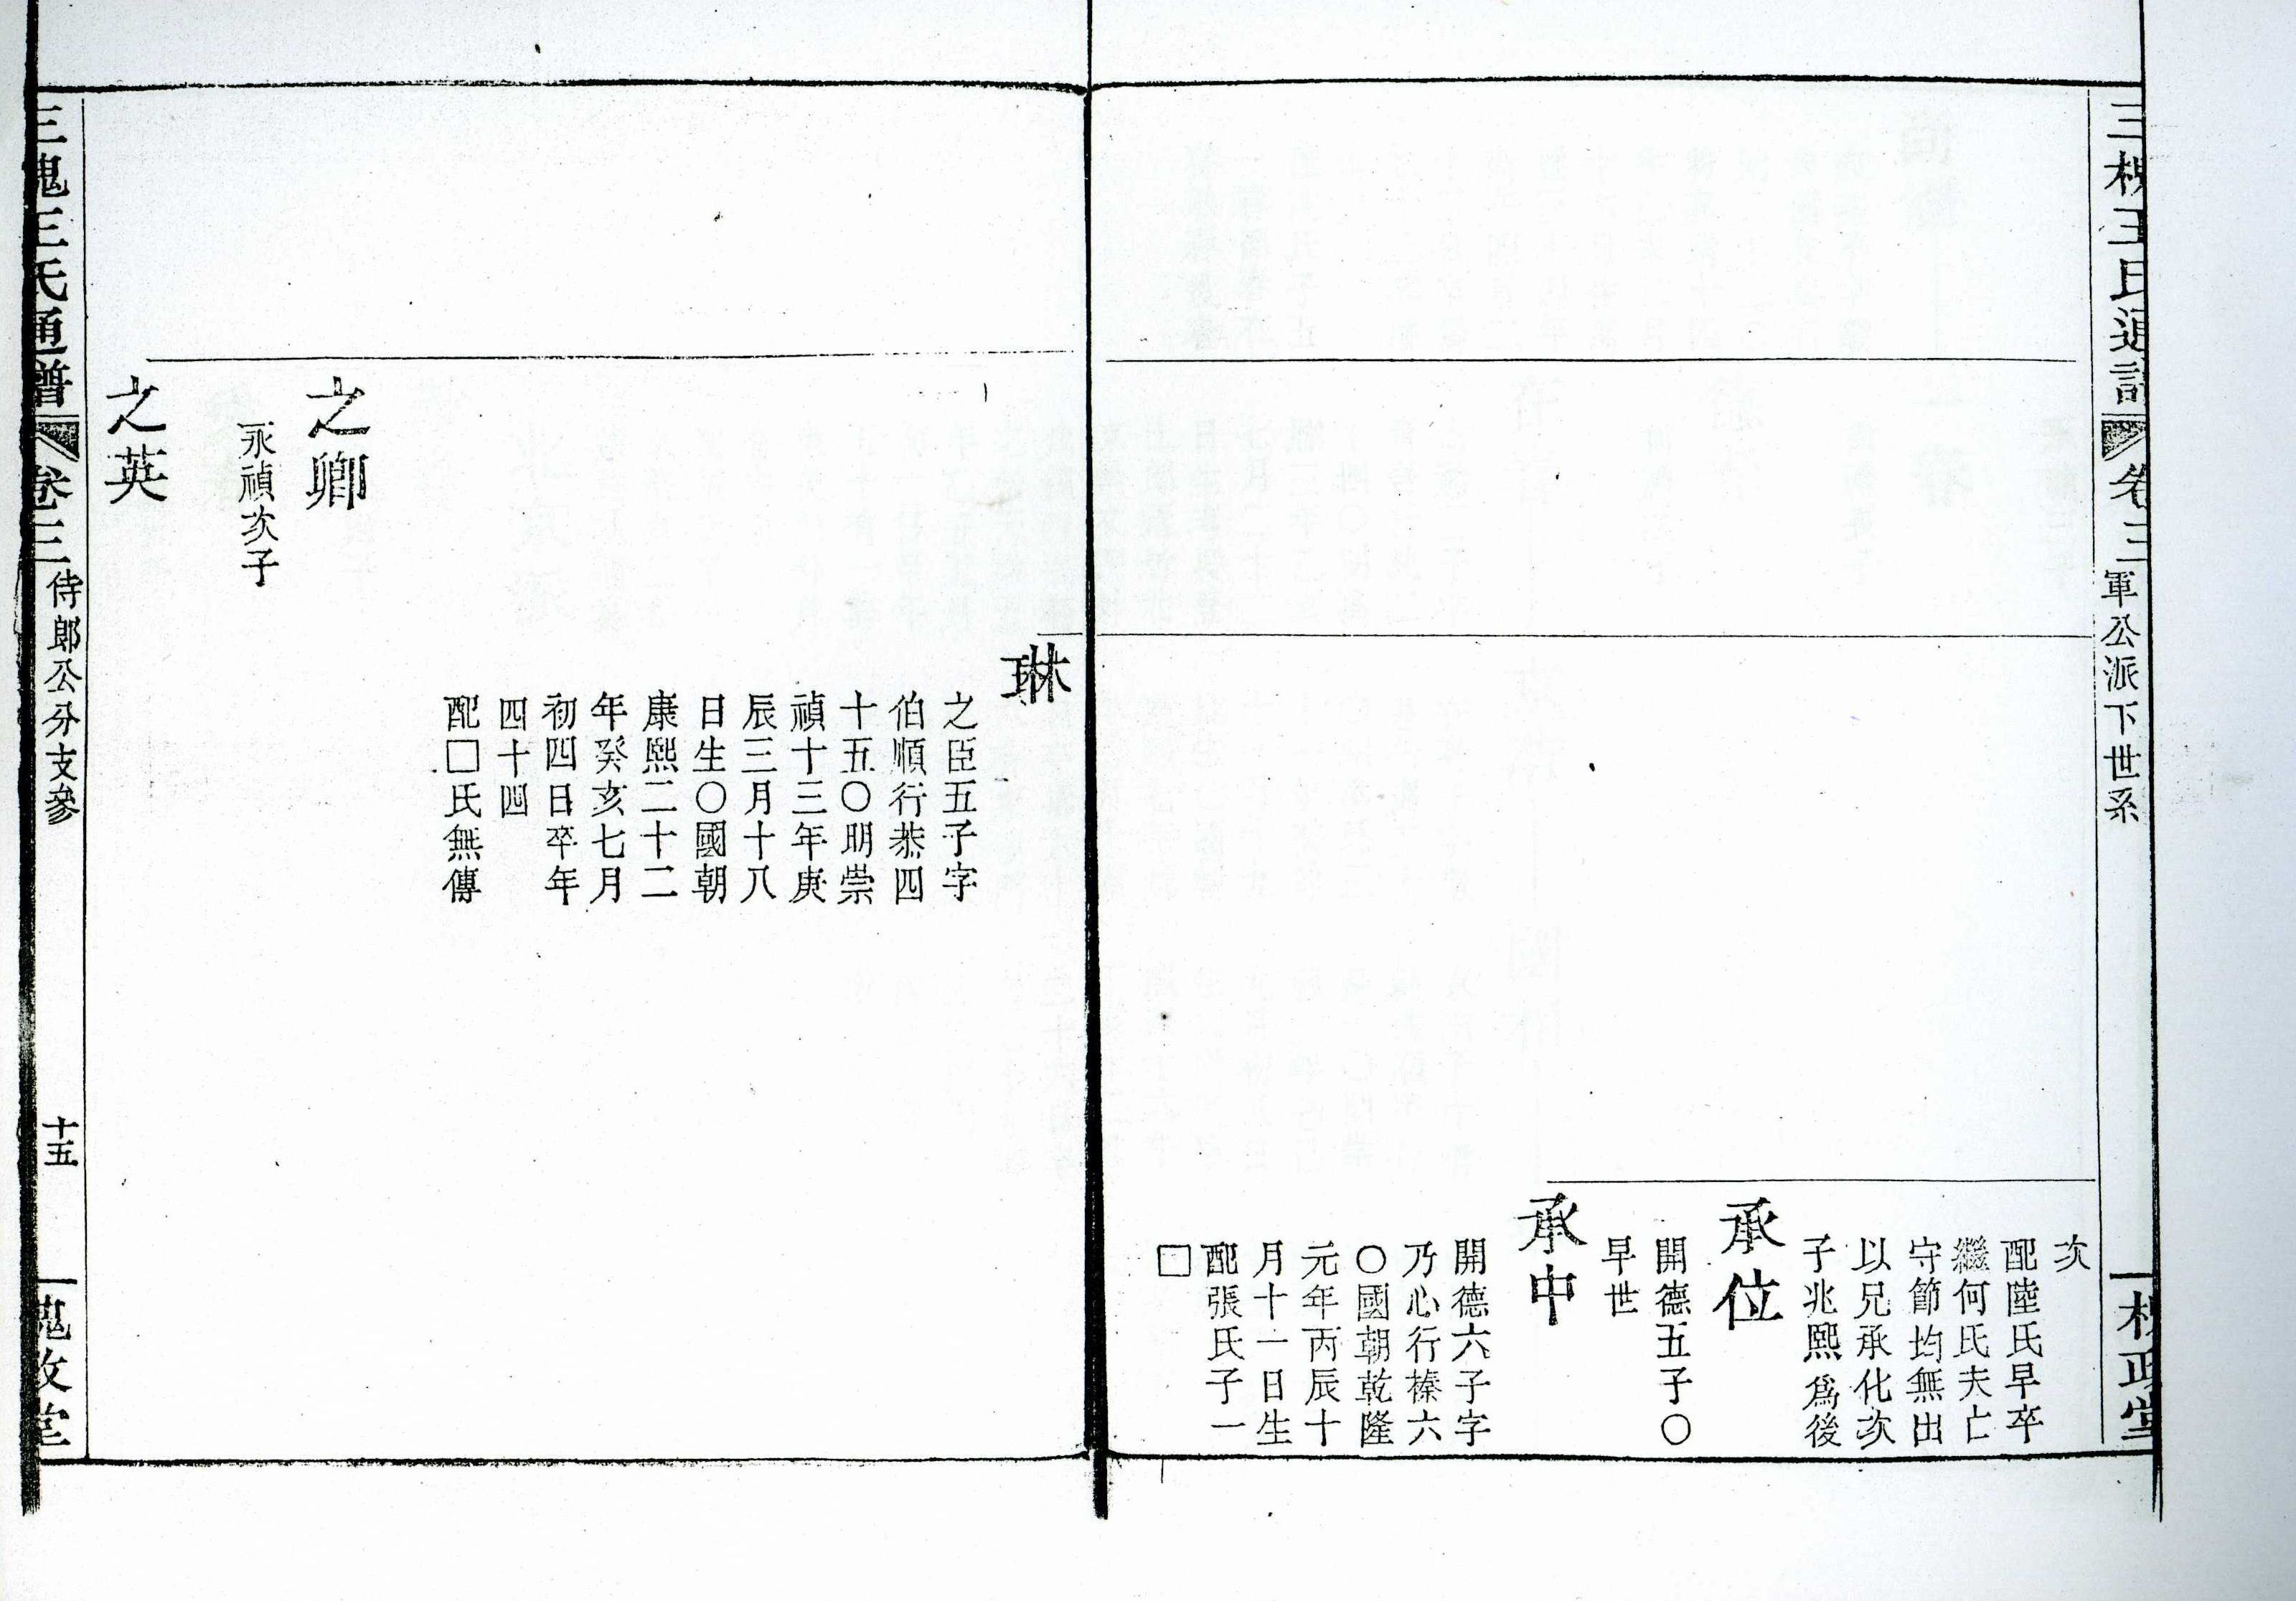 三槐王氏通譜
卷三
軍公派下世系
槐政堂
次
配陸氏早卒
繼何氏夫亡
守節均無出
以兄承化次
子兆熙爲後
承位
開德五子〇
早世
承中
開德六子字
乃心行榛六
〇國朝乾隆
元年丙辰十
月十一日生
配張氏子一
□
琳
之臣五子字
伯順行恭四
十五〇明崇
禎十三年庚
辰三月十八
日生〇國朝
康熙二十二
年癸亥七月
初四日卒年
四十四
配□氏無傳
之卿
永禎次子
之英
三槐王氏通譜
卷三
侍郎公分支參
十五
槐政堂